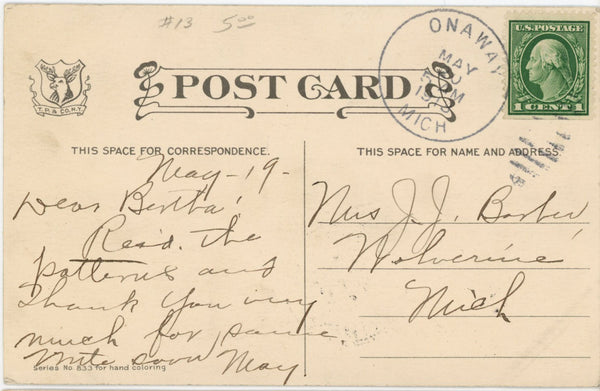 #13 5.00
ONAWAY
MAY
MICH
U.S. POSTAGE
1 CENT 1
T.P. & CO. N.Y.
POST CARD
THIS SPACE FOR CORRESPONDENCE.
THIS SPACE FOR NAME AND ADDRESS.
May-19-
Dear Bertha!
Rec'd. the
patterns and
thank you very
much for same
Write soon May.
Series No 833 for hand coloring
Mrs J.J. Barber,
Wolverine
Mich